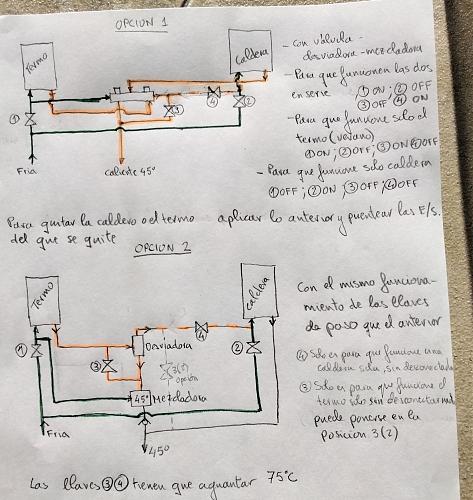 OPCION 1
Termo
Caldera
- Con válvula
desviadora-mezcladora
- Para que funcionen las dos
en serie ① ON ; ② OFF
③ OFF ④ ON
- Para que funcione solo el
termo (verano)
① ON; ② OFF; ③ ON ④ OFF
- Para que funcione solo caldera
① OFF ; ② ON ; ③ OFF; ④ OFF
①
③
④
②
Fria
caliente 45°
Para quitar la caldera o el termo aplicar lo anterior y puentear las E/S.
del que se quite
OPCION 2
Termo
Caldera
Con el mismo funciona-
miento de las llaves
de paso que el anterior
④ Solo es para que funcione una
caldera sola, sin desconectar
③ Solo es para que funcione el
termo solo sin desconectar nada
puede ponerse en la
posicion 3(2)
①
③
④
②
Desviadora
3(2)
opción
45° Mezcladora
Fria
45°
Las llaves ③ ④ tienen que aguantar 75°C